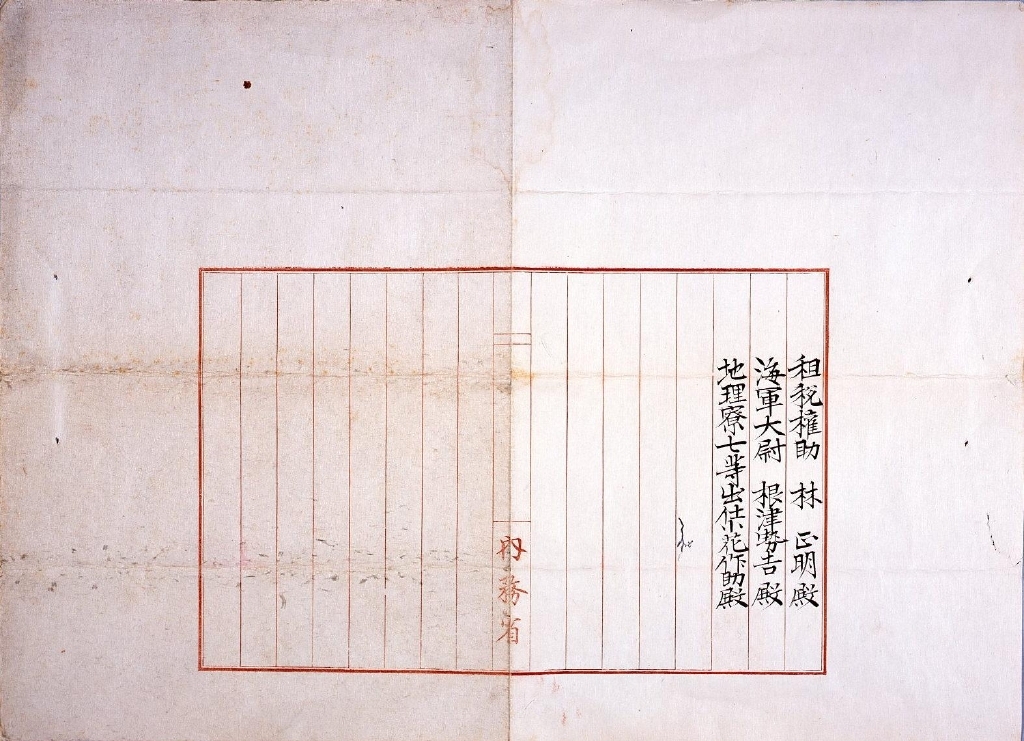 租税権助 林 正明殿
海軍大尉 根津勢吉殿
地理寮七等出仕小花作助殿
内務省